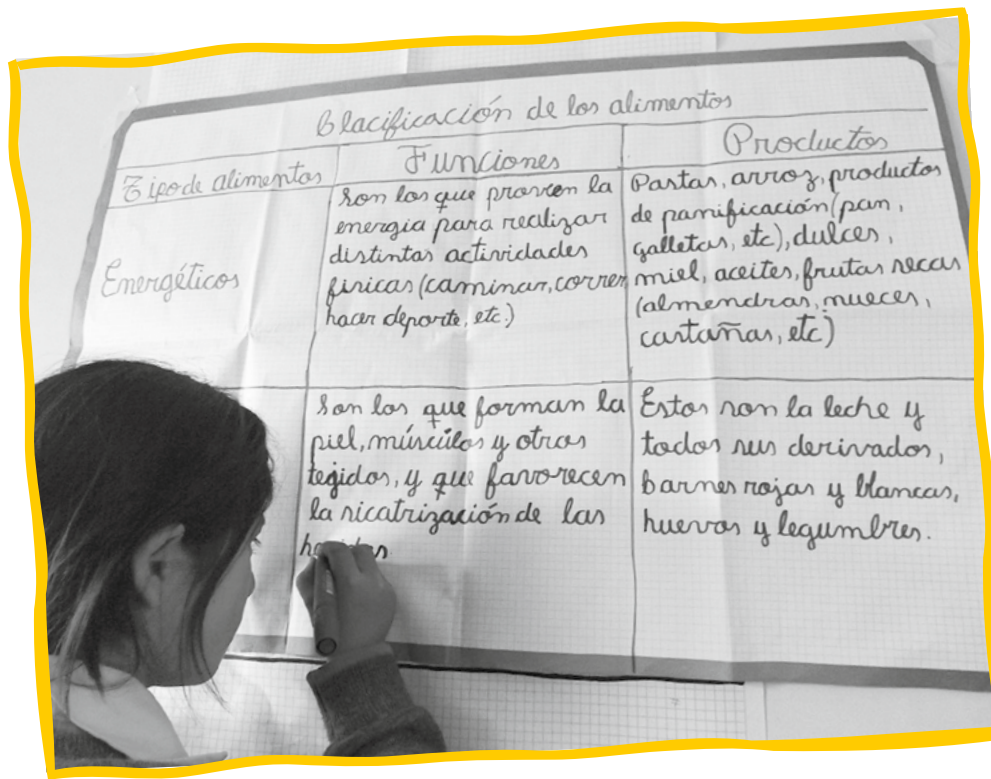 Clacificación de los alimentos
Tipo de alimentos
Funciones
Productos
Energéticos
Son los que proveen la
energia para realizar
distintas actividades
fisicas (caminar, correr
hacer deporte, etc.)
Pastas, arroz, productos
de panificación (pan,
galletas, etc), dulces,
miel, aceites, frutas secas
(almendras, nueces,
castañas, etc)
Son los que forman la
piel, músculos y otros
tejidos, y que favorecen
la sicatrización de las
Estos son la leche y
todos sus derivados,
carnes rojas y blancas,
huevos y legumbres.